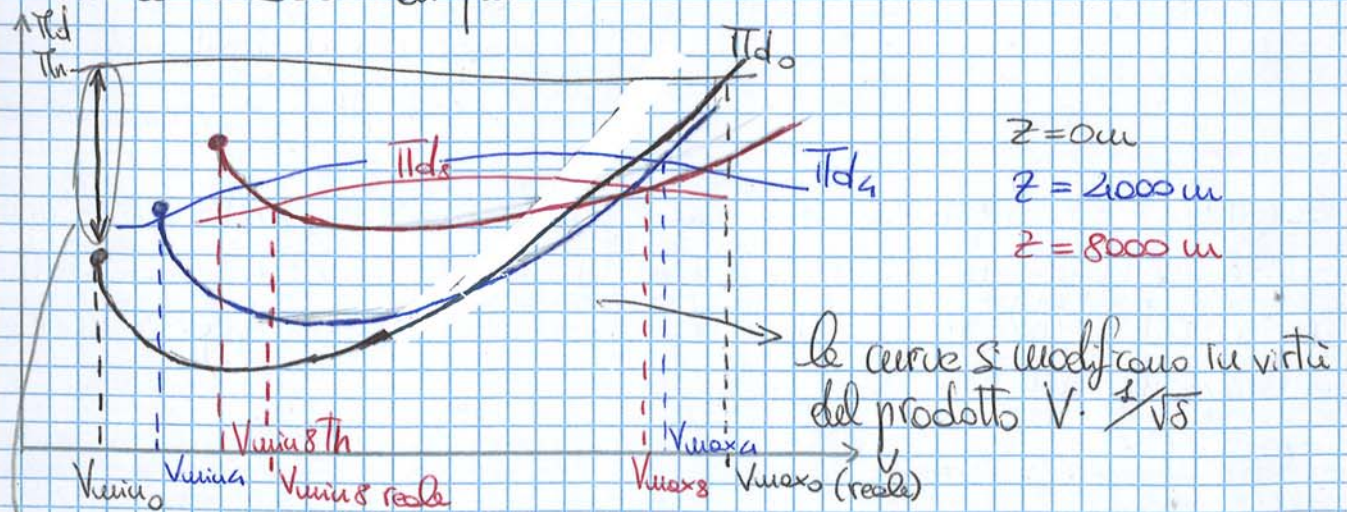 Πd
Πn
Πd₀
Πd₈
Πd₄
Z = 0 m
Z = 4000 m
Z = 8000 m
le curve si modificano in virtù
del prodotto V · 1/√δ
Vmin 8 Th
Vmax4
V
Vmin₀
Vmin4
Vmin 8 reale
Vmax8
Vmax₀ (reale)